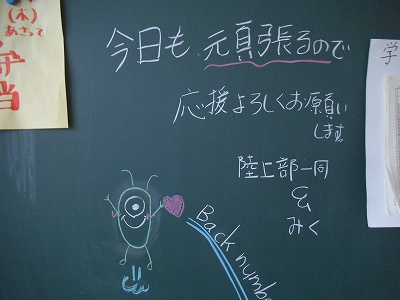 (木)
あさって
弁
当
今日も頑張るので
応援よろしくお願い
します
陸上部一同
&
みく
Back numbe
学